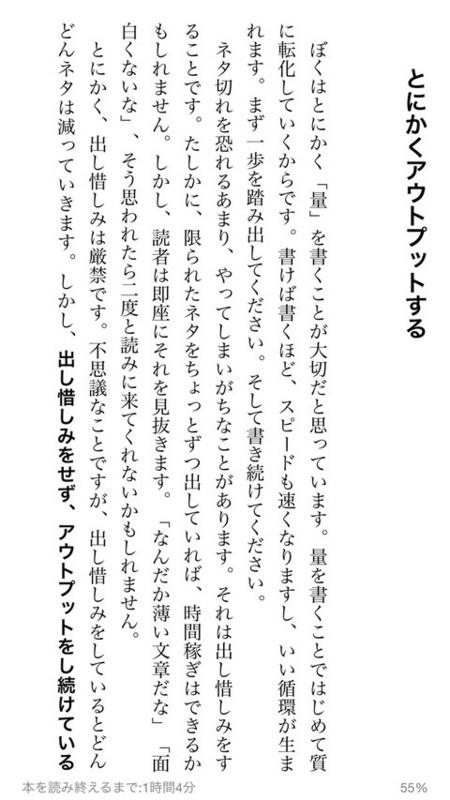 とにかくアウトプットする
ぼくはとにかく「量」を書くことが大切だと思っています。量を書くことではじめて質
に転化していくからです。書けば書くほど、スピードも速くなりますし、いい循環が生ま
れます。まず一歩を踏み出してください。そして書き続けてください。
ネタ切れを恐れるあまり、やってしまいがちなことがあります。それは出し惜しみをす
ることです。たしかに、限られたネタをちょっとずつ出していれば、時間稼ぎはできるか
もしれません。しかし、読者は即座にそれを見抜きます。「なんだか薄い文章だな」「面
白くないな」、そう思われたら二度と読みに来てくれないかもしれません。
とにかく、出し惜しみは厳禁です。不思議なことですが、出し惜しみをしているとどん
どんネタは減っていきます。しかし、出し惜しみをせず、アウトプットをし続けている
本を読み終えるまで:1時間4分
55%